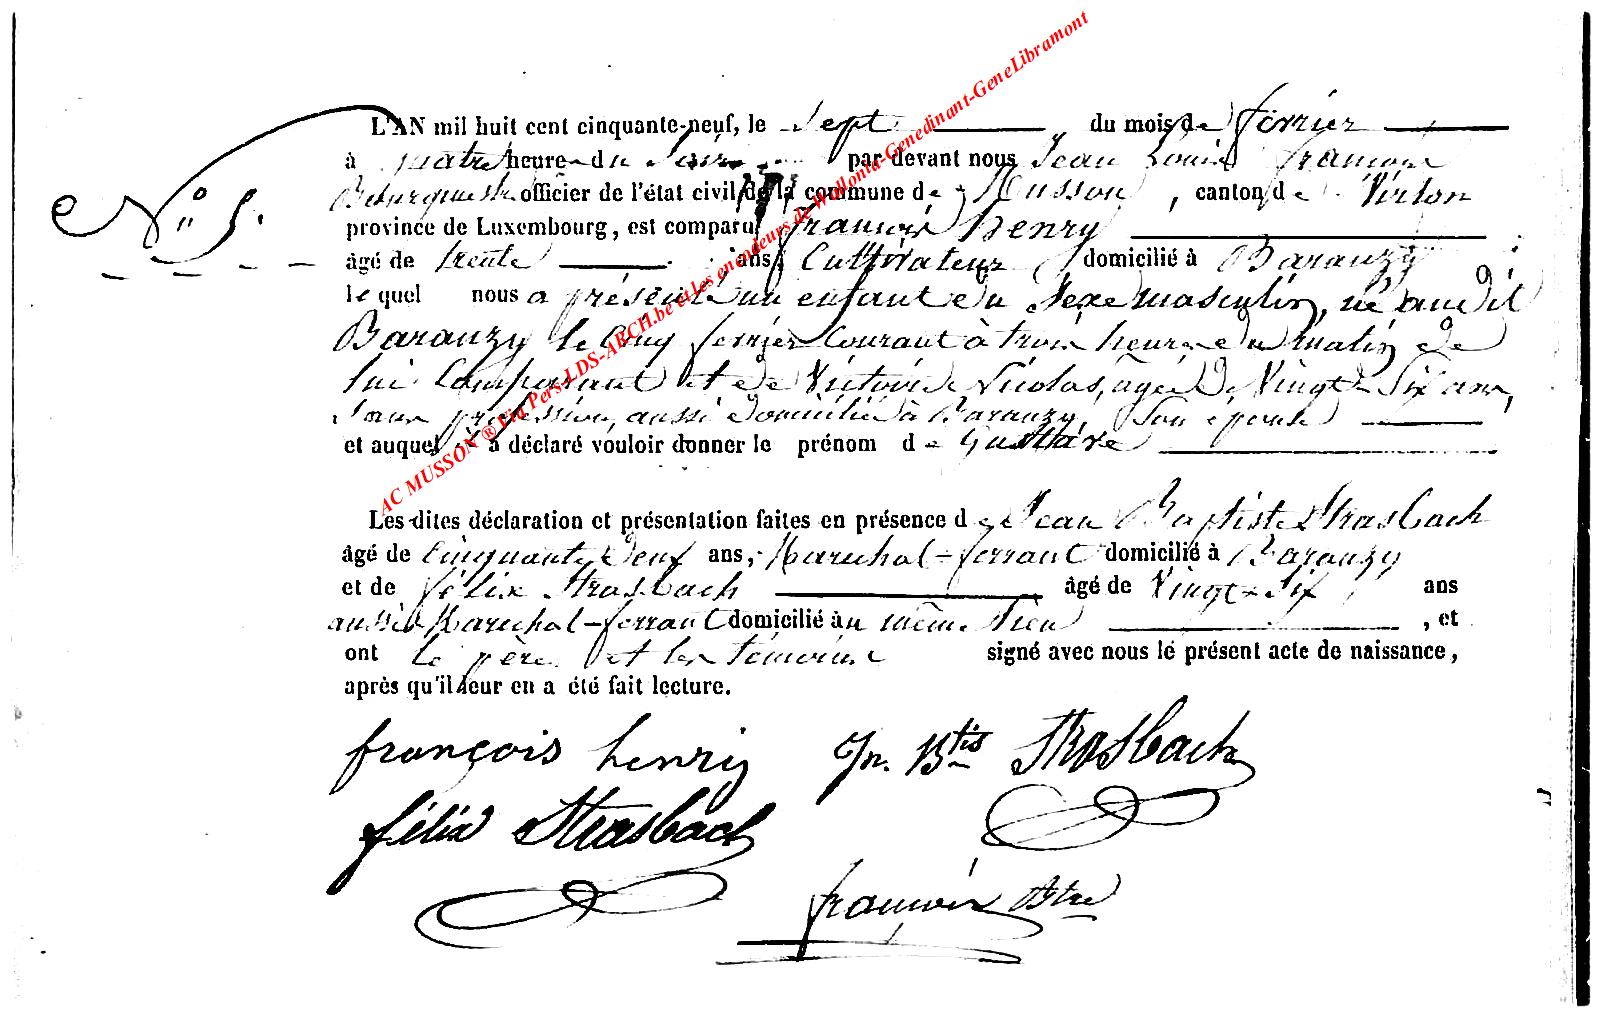 N° 5.
L'AN mil huit cent cinquante-neuf, le Sept du mois de février
à quatre heures du Soir par devant nous Jean Louis françois
Bourgmestre officier de l'état civil de la commune de Musson, canton de Virton
province de Luxembourg, est comparu françois henry
âgé de trente ans, Cultivateur domicilié à Baranzy
lequel nous a présenté un enfant du Sexe masculin, né audit
Baranzy le Cinq février Courant à trois heures du matin de
lui Comparant et de Victoire Nicolas, agée de Vingt-Six ans,
Sans profession, aussi domiciliée à Baranzy, Son épouse
et auquel il a déclaré vouloir donner le prénom de Gustave
Les dites déclaration et présentation faites en présence de Jean Baptiste Strasbach
âgé de Cinquante Neuf ans, Marechal-ferrant domicilié à Baranzy
et de félix Strasbach âgé de Vingt-Six ans
aussi Marechal-ferrant domicilié au même lieu, et
ont le père et les témoins signé avec nous le présent acte de naissance,
après qu'il leur en a été fait lecture.
françois henry Jn. Btis Strasbach
félix Strasbach
françois Btre
AC MUSSON ® Fia Pers-LDS-ARCH.be et les encodeurs de Wallonia-Genedinant-GeneLibramont